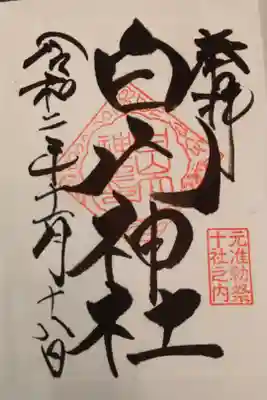 奉拝
白山神社
元准勅祭
十社之内
令和二年十一月十八日